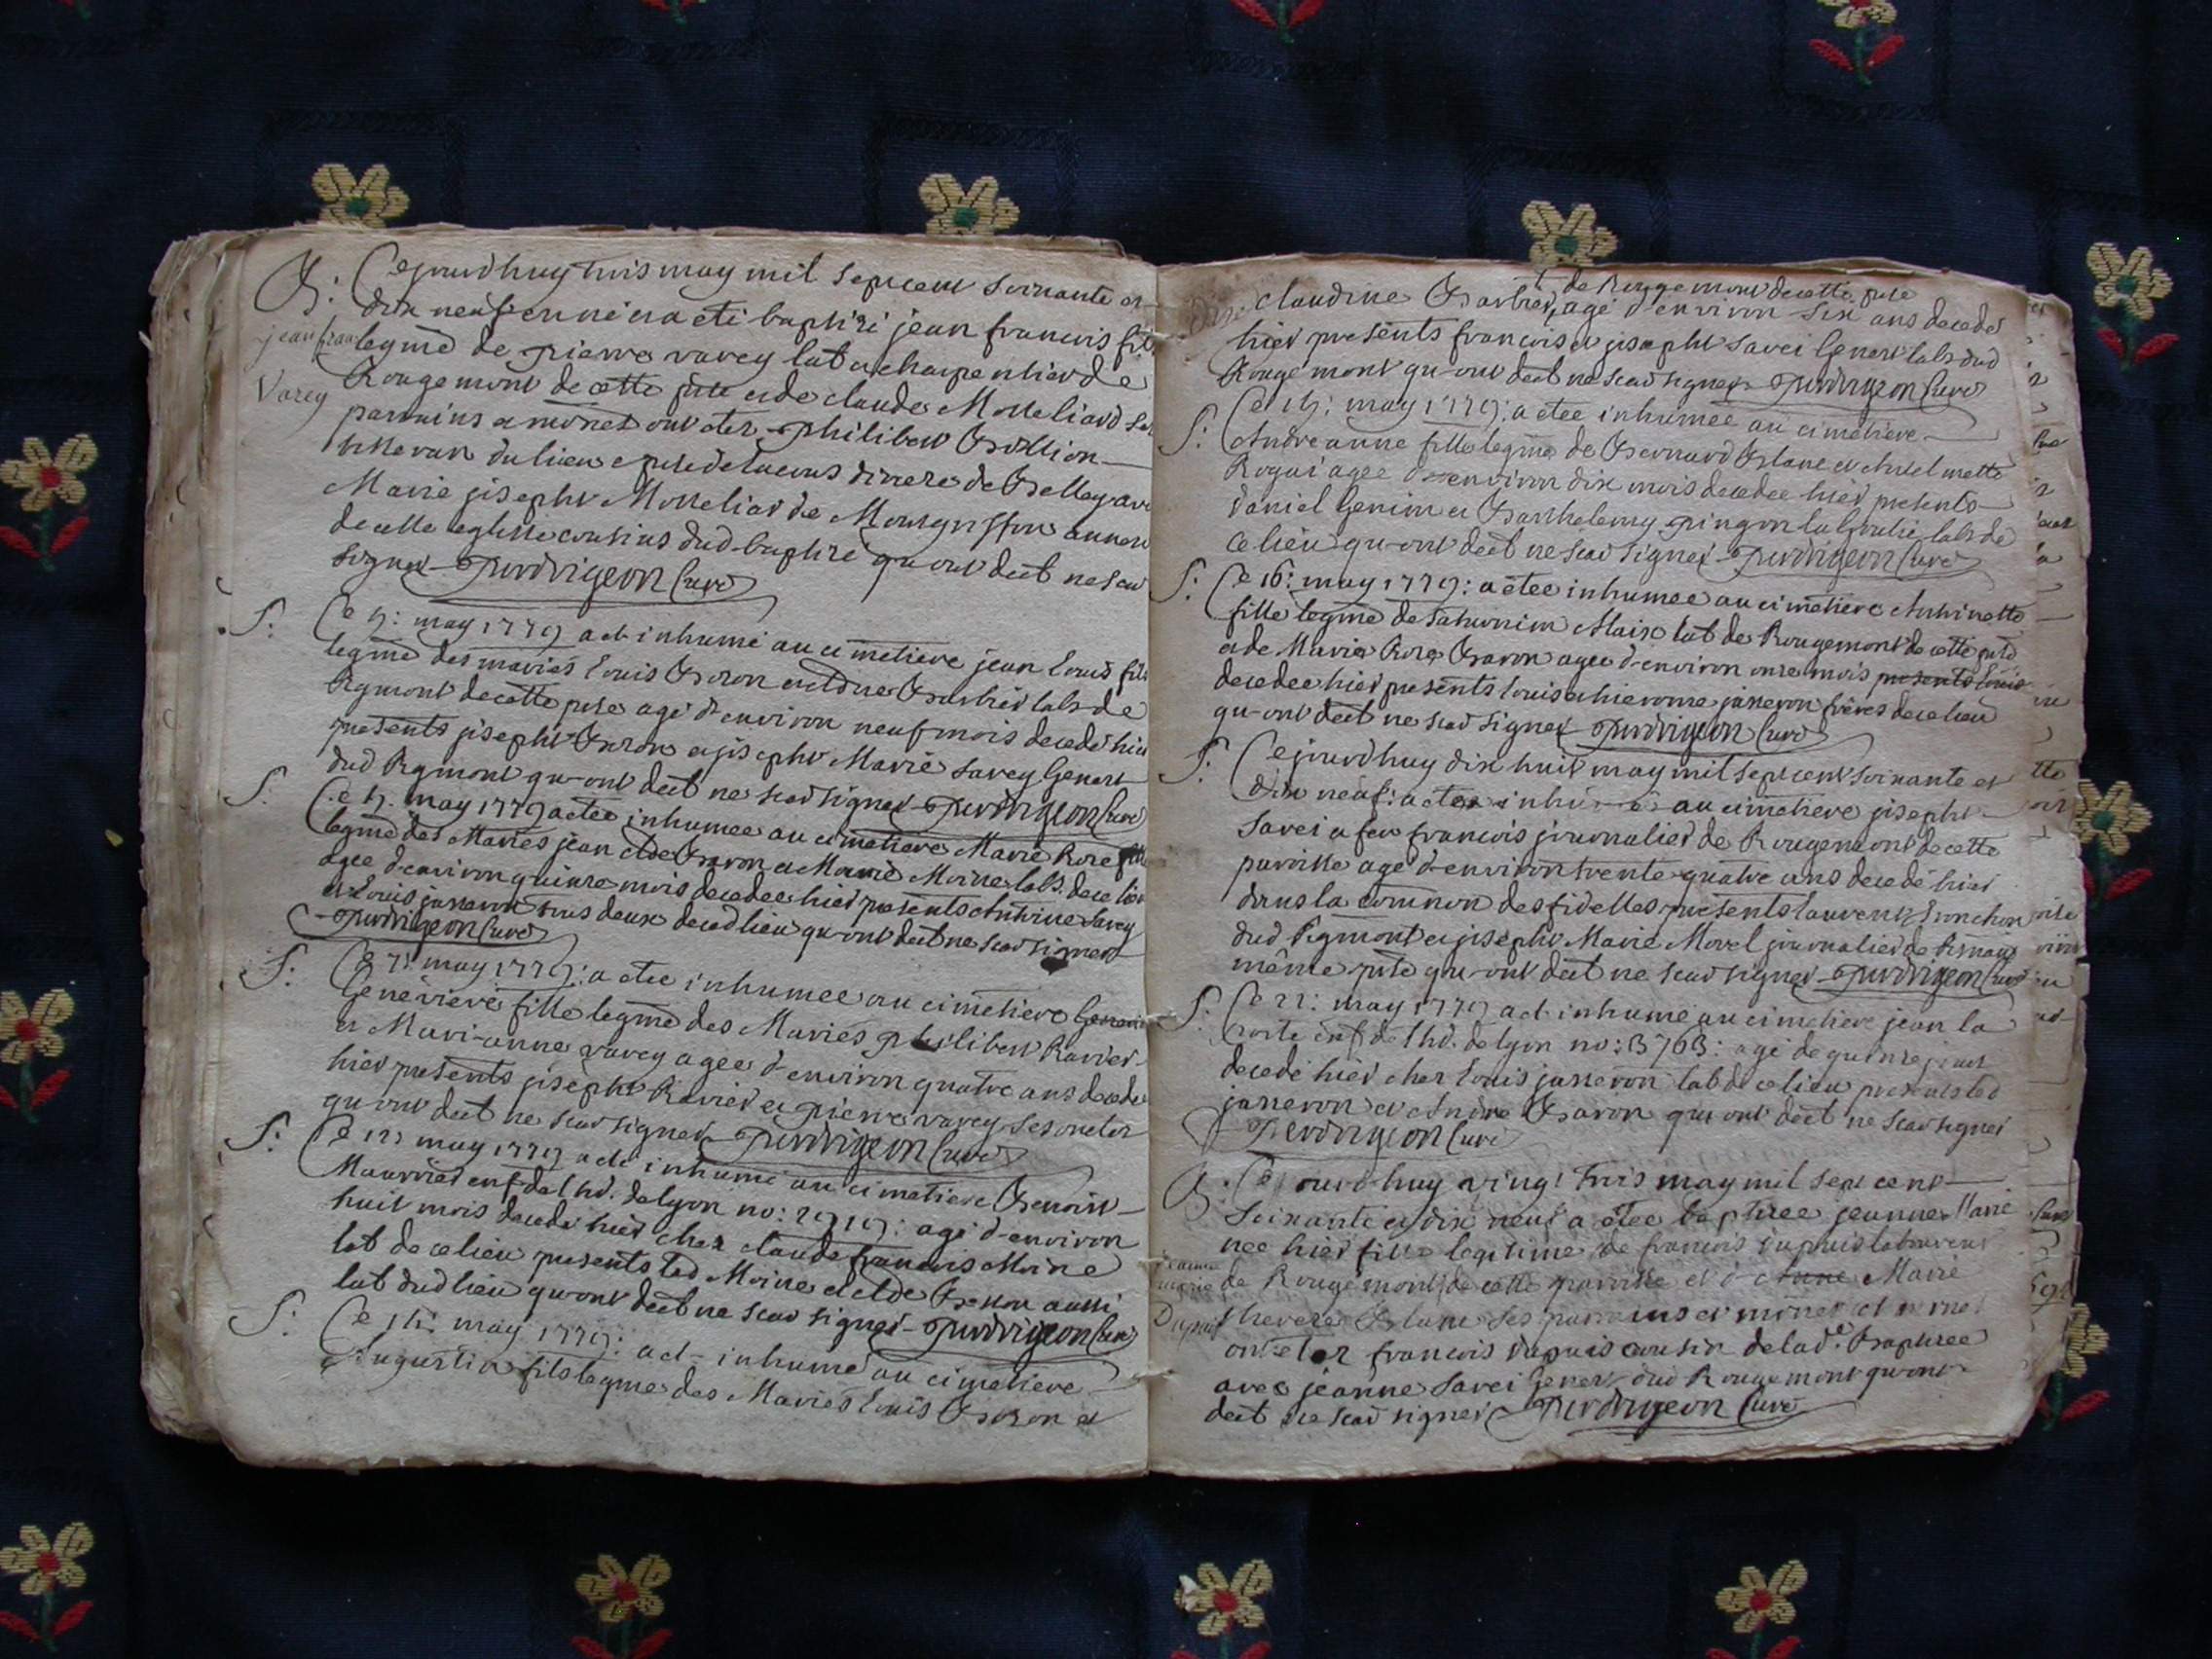 B: Cejourdhuy trois may mil sept cent soixante et
dix neuf est né et a eté baptizé jean francois fils
jean fran legme de pierre varey lab et charpentier de
Varey Rougemont de cette psse et de claude Molleliard ses
parrains et ont etez philibert Bollion
du lieu et psse de lucens diocese de Belley avec
Marie joseph Molleliard de Montgriffon annexe
de cette eglisse cousins dud baptizé qu ont deet ne scav
signer Perdrigeon Curé
S: Ce 5: may 1779 a eté inhumé au cimetiere jean Louis fils
legme des mariés Louis Baron et Barbier labs de
Rgmont de cette psse agé d'environ neuf mois decedé hier
presents joseph Baron et joseph Marie Savey Genert
dud Rgmont qu-ont deet ne scav signer Perdrigeon Curé
S. Ce 5. may 1779 a etée inhumee au cimetiere Marie Rose fille
legme des Mariés jean clde Baron et Marie Moine labs. de ce lieu
agee d'environ quinze mois decedee hier presents Antoine Savey
et Louis janneron tous deux decedlieu qu-ont deet ne scav signer
Perdrigeon Curé
S: Ce 7: may 1779: a etee inhumee au cimetiere
Genévieve fille legme des Mariés philibert Ravier
et Mari-anne varey agee d'environ quatre ans decedee
hier presents joseph Ravier et pierre varey ses oncles
qu ont deet ne scav signer Perdrigeon Curé
S: Ce 12: may 1779 a eté inhumé au cimetiere Benoist
Maurrier enf de l'hd. de lyon no: 2919: agé d'environ
huit mois decedé hier chez claude francois Moine
lab de ce lieu presents led Moine et clde Besson aussi
lab dud lieu qu-ont deet ne scav signer Perdrigeon Curé
S: Ce 14: may 1779: a eté inhumé au cimetiere
Augustin fils legme des Mariés Louis Baron et
claudine Barbier, t de Rougemont de cette psse
agé d'environ six ans decedé
hier presents francois et joseph Savei Genert labs dud
Rougemont qu-ont deet ne scav signer Perdrigeon Curé
S: Ce 15: may 1779: a etee inhumée au cimetiere
Andréanne fille legme de Bernard Blanc et
agee d'environ dix mois decedee hier presents
daniel Genin et Barthelemy pingon labs de
ce lieu qu-ont deet ne scav signer Perdrigeon Curé
S: Ce 16: may 1779: a etee inhumee au cimetiere Anthoinette
fille legme de Saturnin Alaix lab de Rougemont de cette psse
et de Marie Rose Baron agee d'environ onze mois presents Louis
decedee hier presents Louis et hierome janneron freres de ce lieu
qu-ont deet ne scav signer Perdrigeon Curé
S: Cejourdhuy dix huit may mil sept cent soixante et
dix neuf: a eté inhumé au cimetiere joseph
Savei a feu francois journalier de Rougemont de cette
parroisse agé d'environ trente quatre ans decedé hier
dans la comunon des fidelles presents laurent
dud Rgmont et joseph Marie Morel journalier de
même psse qu-ont deet ne scav signer Perdrigeon Curé
S: Ce 22: may 1779 a eté inhumé au cimetiere jean la
enf de l'hd. de lyon no: B 76B: agé de quinze jours
decedé hier chez Louis janneron lab de ce lieu presents led
janneron et Andre Baron qu-ont deet ne scav signer
Perdrigeon Curé
B. Cejourdhuy vingt trois may mil sept cent
soixante et dix neuf a étee baptizee jeanne Marie
née hier fille legitime de francois dupuis laboureur
jeanne marie de Rougemont de cette parroisse et d'Anne Marie
Dupuis therese Blanc ses parrains et
ont etez francois dupuis cousin de lade Baptizee
avec jeanne Savei Genert dud Rougemont qu-ont
deet ne scav signer Perdrigeon Curé